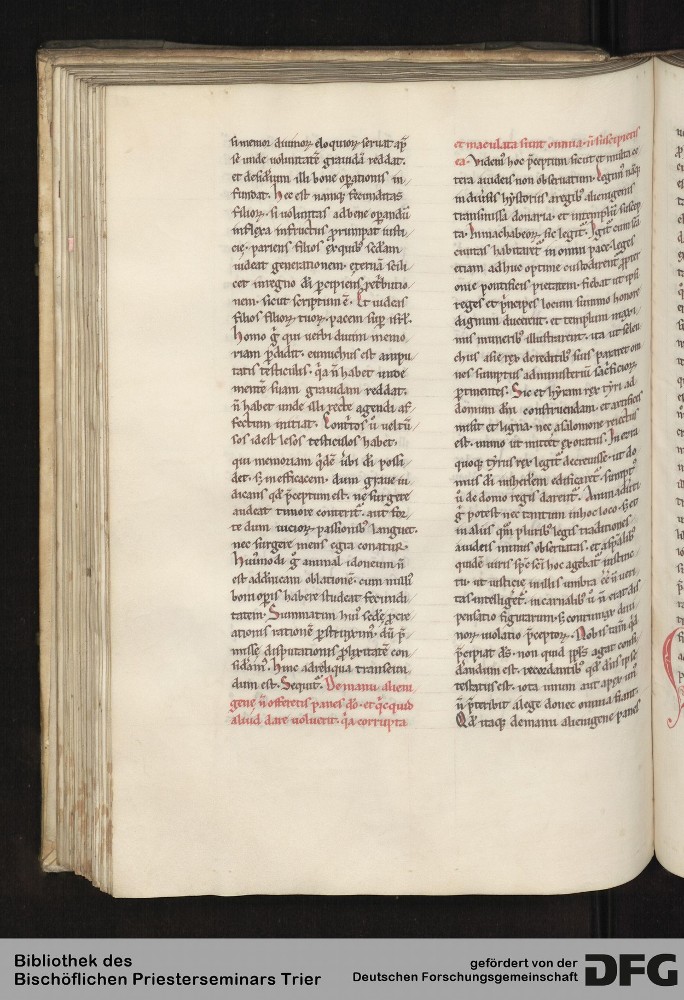 si memor diuinoꝝ eloquioꝝ seruat aꝑ
se unde uoluntatē grauidā reddat.
et desideriū illi bone oꝑationis in
fundat. Hec est namq; fecunditas
filioꝝ. si uoluntas ad bene oꝑandū
inflexa in fructus ꝓrumpat iusti
cię. pariens filios ex quib; sedam
uideat generationem. eternā scili
cet in regno dī ꝑcipiens retˀbutio
nem. sicut scriptum ē. Et uideas
filios filioꝝ tuoꝝ. pacem suꝑ isrl̄.
Homo gͥ qui uerbi diuini memo
riam ꝑdidit. eunuchus est ampu
tatis testiculis. qͥa n̄ habet unde
mentē suam grauidam reddat.
n̄ habet unde illi recte agendi af
fectum iniciat. Contͥtos ū uel tū
sos id est lesos testiculos habet.
qui memoriam qͥdē uerbi dī possi
det. sꝫ inefficacem. dum graue iu
dicans qd̄ p̄ceptum est. ne surgere
audeat timore conteritˀ. aut for
te dum uicioꝝ passionib; languet.
nec surgere mens egra conatur.
Huiꝰmodi gͥ animal idoneum n̄
est ad dn̄icam oblationē. cum nullꝰ
boni opˀis habere studeat fecundi
tatem. Summatim huiꝰ sedę ꝓcere
ationis rationē ꝑstrinximꝰ. dū p̄
missę disputationis ꝓlixitatē con
sidamꝰ. Hinc ad reliqua transeun
dum est. Sequitˀ. De manu alieni
genę n̄ offeretis panes dō. et qͥcquid
aliud dare uoluerit. qͥa corrupta
et maculata sunt omnia. n̄ suscipietis
ea. Videmꝰ hoc p̄ceptum sicut et multa ce
tera a iudeis non obseruatum. Legimꝰ nāq;
in diuersis hystoriis a regib; alienigenis
transmissa donaria. et in templū suscep
ta. In machabeoꝝ. sic legitˀ. Igitˀ cum scā
ciuitas habitaretˀ in omni pace. leges
etiam adhuc optime custodirentˀ. ꝓpter
onie pontificis pietatem. fiebat ut ipsi
reges et p̄ncipes locum summo honore
dignum ducerent. et templum maxi
mis muneribꝰ illustrarent. ita ut seleu
chus asie rex de redditib; suis pararet om
nes sumptus ad ministeriū sacˀficioꝝ.
ꝑtinentes. Sic et hyram rex tyri ad
domum dn̄i construendam. et artifices
misit et ligna. nec a salomone reiectus
est. immo ut mittet̄ exoratus. In ezra
quoq; cyrus rex legitˀ decreuisse. ut do
mus dī in ihrlm̄ edificaretˀ. sumptꝰ
ū de domo regis darentˀ. Animaduti
gͥ potest nec tantum in hoc loco. sꝫ et
in aliis qm̄ pluribꝰ legis traditiones
a iudeis minus obseruatas. et a sp̄alib;
quidē uiris sp̄c sc̄i hoc agebatˀ instinc
tu. ut iusticię in illis umbra ēē n̄ ueri
tas intelligetˀ. in carnalib; ū n̄ erat dis
pensatio figuraꝝ. sꝫ continuaᷣ diui
noꝝ uiolatio p̄ceptoꝝ. Nobis tam̄ qͥd
p̄cipiat dō. non quid ppl̄s agat consi
dandum est. recordantib; qd̄ dn̄s ipse
testatus est. iota unum aut apex unꝰ
n̄ p̄teribit a lege donec omnia fiant.
Qd̄ itaq; de manu alienigene panes
Bibliothek des
Bischöflichen Priesterseminars Trier
gefördert von der
Deutschen Forschungsgemeinschaft
DFG